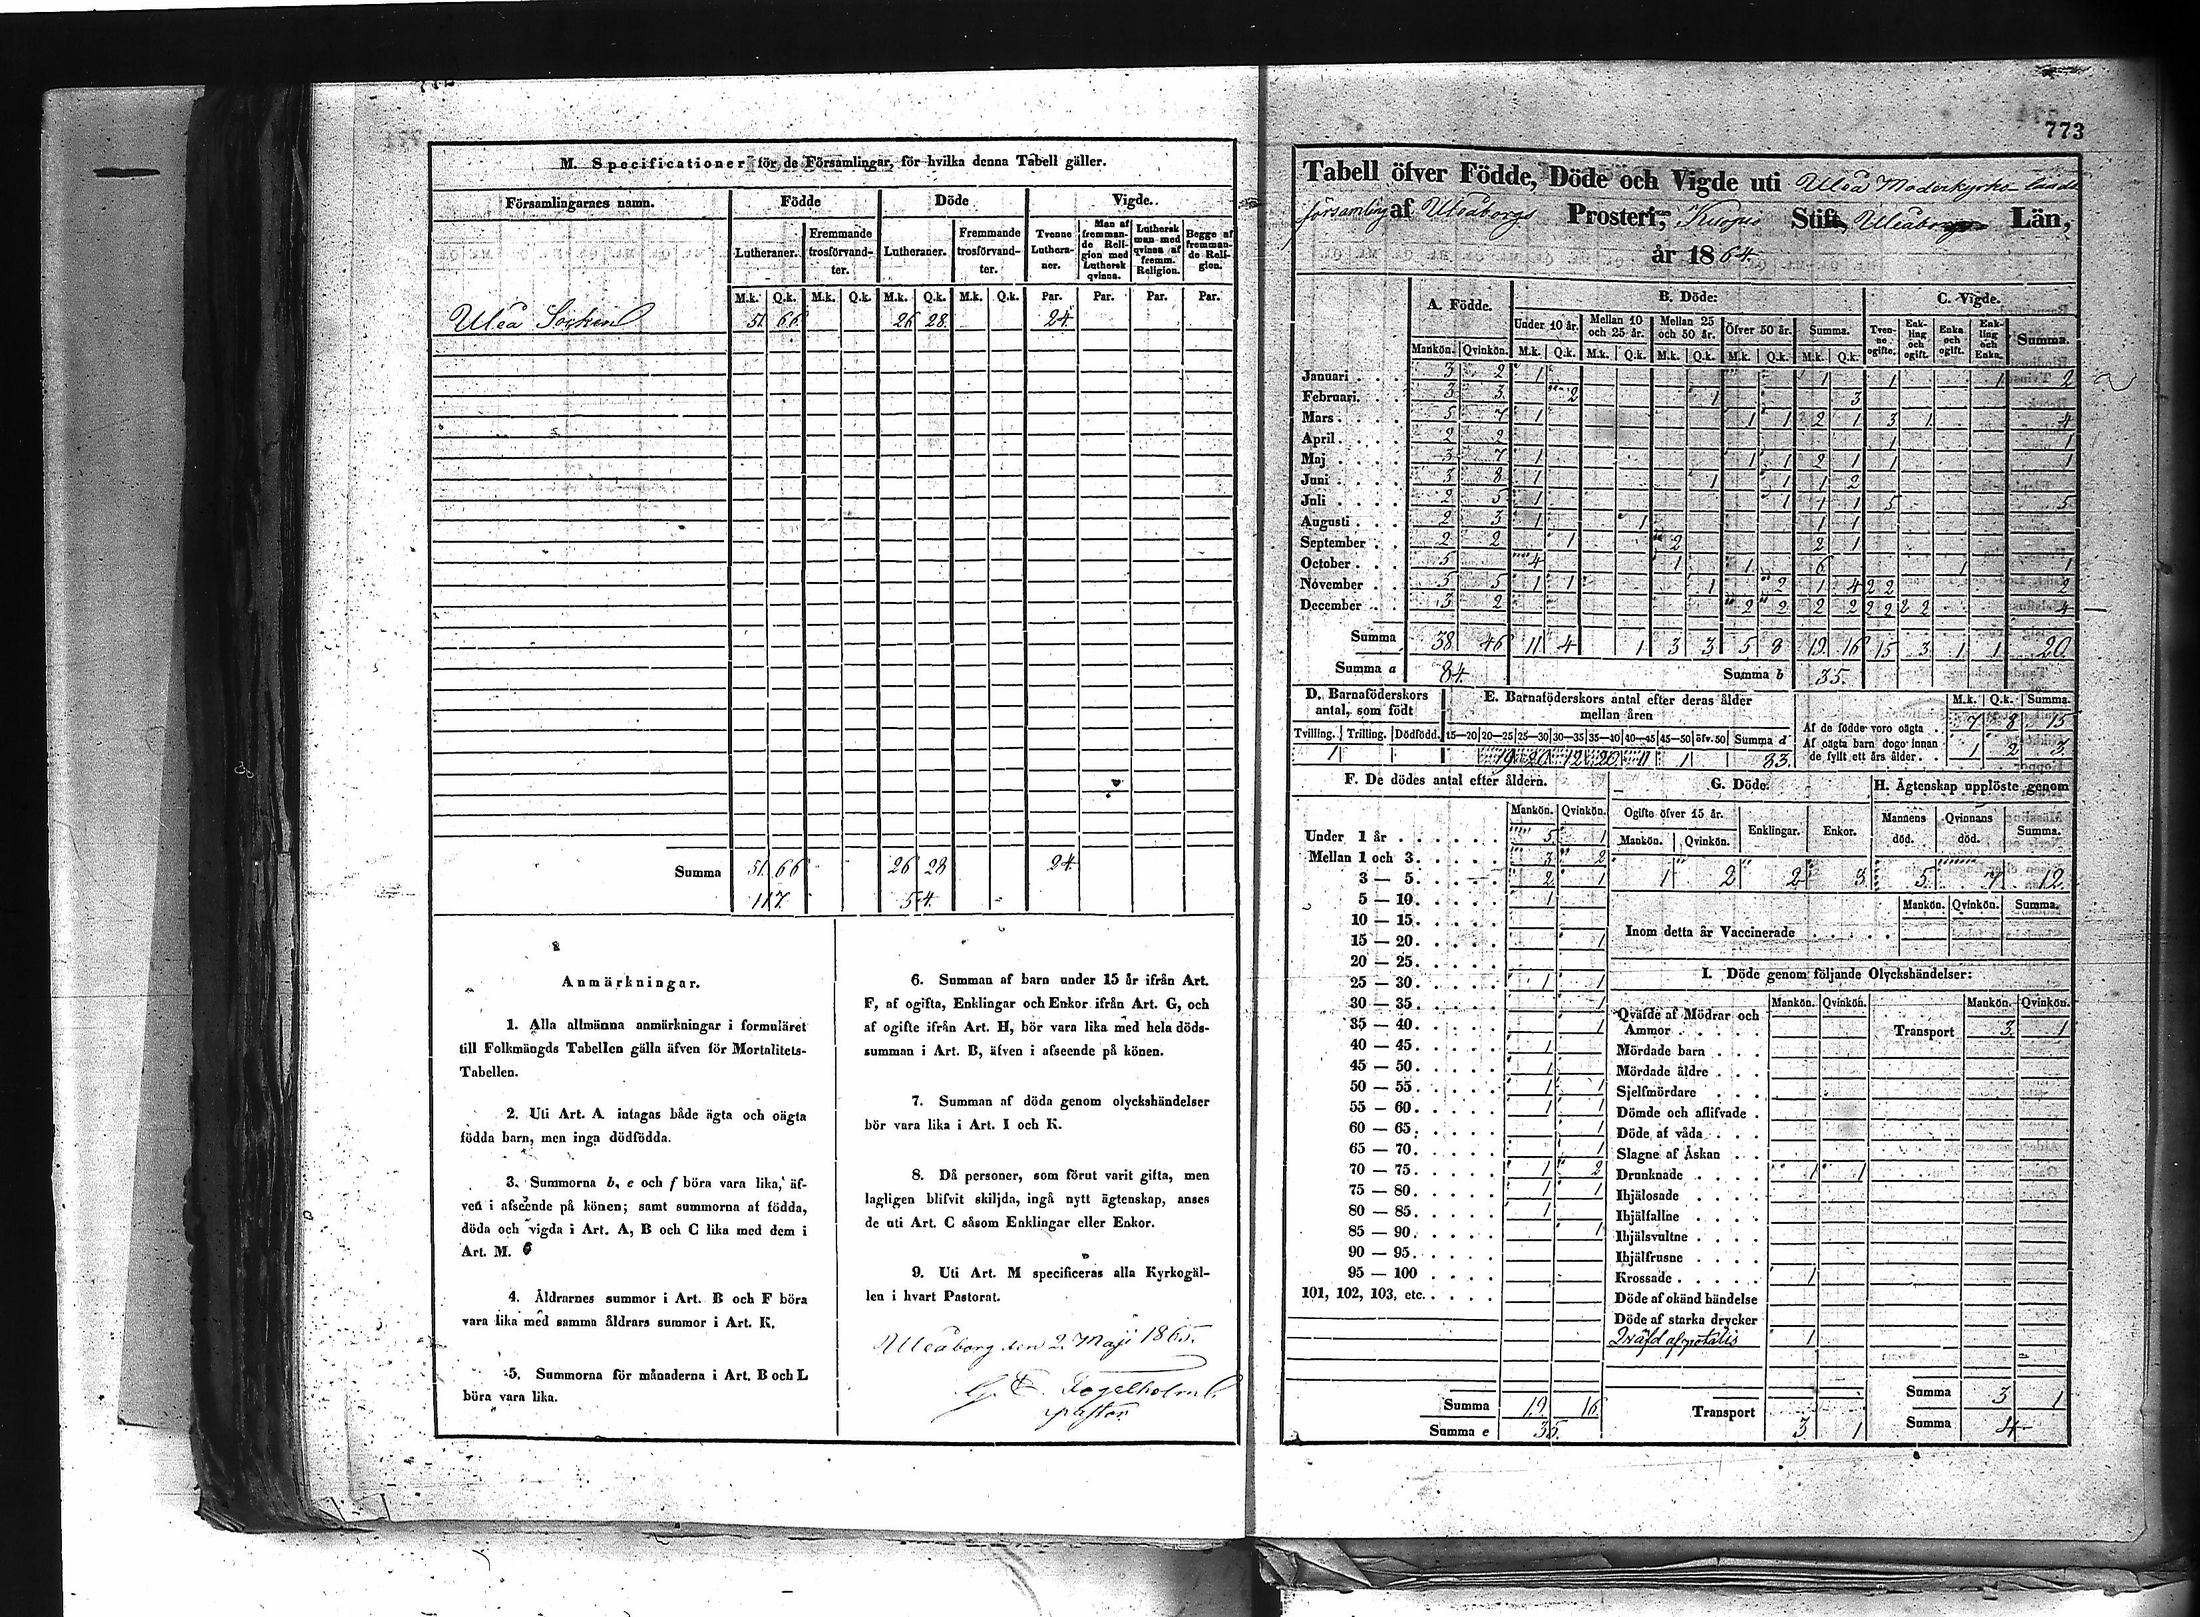 M. Specificationer för de Församlingar, för hvilka denna Tabell gäller.
Församlingarnes namn. Födde Döde Vigde.
Lutheraner. Fremmande trosförvandter. Lutheraner. Fremmande trosförvandter. Tvenne Lutheraner. Man af fremmande Religion med Luthersk qvinna. Luthersk man med qvinna af fremm. Religion. Begge af fremmande Religion.
M.k. Q.k. M.k. Q.k. M.k. Q.k. M.k. Q.k. Par. Par. Par. Par.
Uleå Socken 51 66 26 28 24
Summa 51 66 26 28 24
117. 54.
Anmärkningar.
1. Alla allmänna anmärkningar i formuläret
till Folkmängds Tabellen gälla äfven för Mortalitets-
Tabellen.
2. Uti Art. A intagas både ägta och oägta
födda barn, men inga dödfödda.
3. Summorna b, e och f böra vara lika, äf-
ven i afseende på könen; samt summorna af födda,
döda och vigda i Art. A, B och C lika med dem i
Art. M.
4. Åldrarnes summor i Art. B och F böra
vara lika med samma åldrars summor i Art. K.
5. Summorna för månaderna i Art. B och L
böra vara lika.
6. Summan af barn under 15 år ifrån Art.
F, af ogifta, Enklingar och Enkor ifrån Art. G, och
af ogifte ifrån Art. H, bör vara lika med hela döds-
summan i Art. B, äfven i afseende på könen.
7. Summan af döda genom olyckshändelser
bör vara lika i Art. I och K.
8. Då personer, som förut varit gifta, men
lagligen blifvit skiljda, ingå nytt ägtenskap, anses
de uti Art. C såsom Enklingar eller Enkor.
9. Uti Art. M specificeras alla Kyrkogäl-
len i hvart Pastorat.
Uleåborg den 2 Maji 1865.
Fogelholm
pastor
773
Tabell öfver Födde, Döde och Vigde uti Uleå Moderkyrko lands
församling af Uleåborgs Prosteri, Kuopio Stift, Uleåborgs Län,
år 1864.
A. Födde. B. Döde: C. Vigde.
Under 10 år. Mellan 10 och 25 år. Mellan 25 och 50 år. Öfver 50 år. Summa. Tvenne ogifte. Enkling och ogift. Enka och ogift. Enkling och Enka. Summa.
Mankön. Qvinkön. M.k. Q.k. M.k. Q.k. M.k. Q.k. M.k. Q.k. M.k. Q.k.
Januari 3 2 1 1 1 1 2
Februari 3 3 2 1 3
Mars 5 7 1 1 1 2 1 3 1 4
April 2 2 1 1
Maj 3 7 1 1 1 2 1 1 1
Juni 3 8 1 1 1 1 2
Juli 2 5 1 1 1 1 5 5
Augusti 2 3 1 1 1 1
September 2 2 1 2 2 1
October 5 4 1 1 6 1 1
November 5 5 1 1 1 2 1 4 2 2
December 3 2 2 2 2 2 2 2 4
Summa 38 46 11 4 1 3 3 5 8 19 16 15 3 1 1 20
Summa a 84. Summa b 35.
D. Barnaföderskors antal, som födt
Tvilling. Trilling. Dödfödd.
1
E. Barnaföderskors antal efter deras ålder mellan åren
15—20 20—25 25—30 30—35 35—40 40—45 45—50 öfv. 50 Summa d
19 20 12 20 11 1 83.
M.k. Q.k. Summa.
Af de födde voro oägta 7 8 15
Af oägta barn dogo innan de fyllt ett års ålder. 1 2 3
F. De dödes antal efter åldern.
Mankön. Qvinkön.
Under 1 år 5 1
Mellan 1 och 3 3 2
3 — 5 2 1
5 — 10 1
10 — 15
15 — 20 1
20 — 25
25 — 30 1 1
30 — 35 1
35 — 40 1
40 — 45 1
45 — 50 1
50 — 55 1 1
55 — 60 1 1
60 — 65 1
65 — 70 1
70 — 75 1 2
75 — 80 1 1
80 — 85 1
85 — 90 1
90 — 95
95 — 100
101, 102, 103, etc.
Summa 19 16
Summa e 35.
G. Döde.
Ogifte öfver 15 år. Enklingar. Enkor.
Mankön. Qvinkön.
1 2 2 3
H. Ägtenskap upplöste genom
Mannens död. Qvinnans död. Summa.
5 7 12
Mankön. Qvinkön. Summa.
Inom detta år Vaccinerade
I. Döde genom följande Olyckshändelser:
Mankön. Qvinkön. Mankön. Qvinkön.
Qväfde af Mödrar och Ammor
Transport 3 1
Mördade barn
Mördade äldre
Sjelfmördare
Dömde och aflifvade
Döde af våda
Slagne af Åskan
Drunknade 1 1
Ihjälosade
Ihjälfallne
Ihjälsvultne
Ihjälfrusne
Krossade 1
Döde af okänd händelse
Döde af starka drycker
Qväfd af potatis 1
Transport 3 1
Summa 3 1
Summa 4